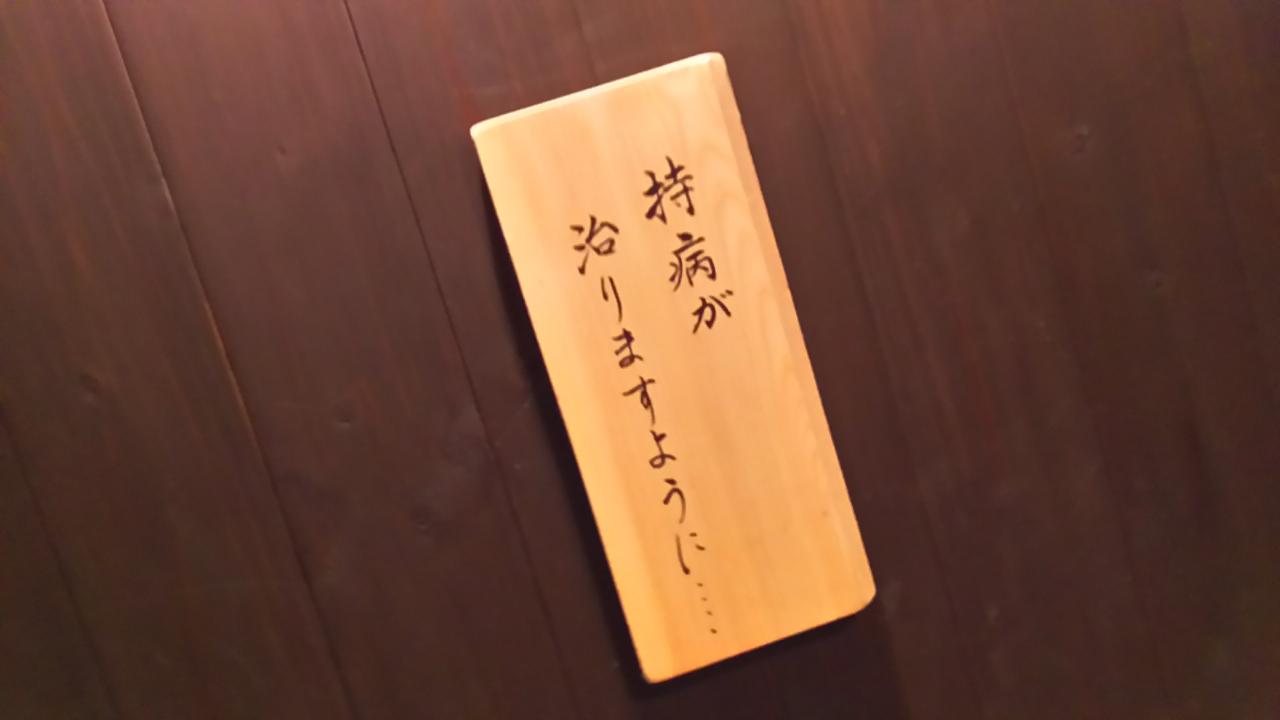 持病が
治りますように….